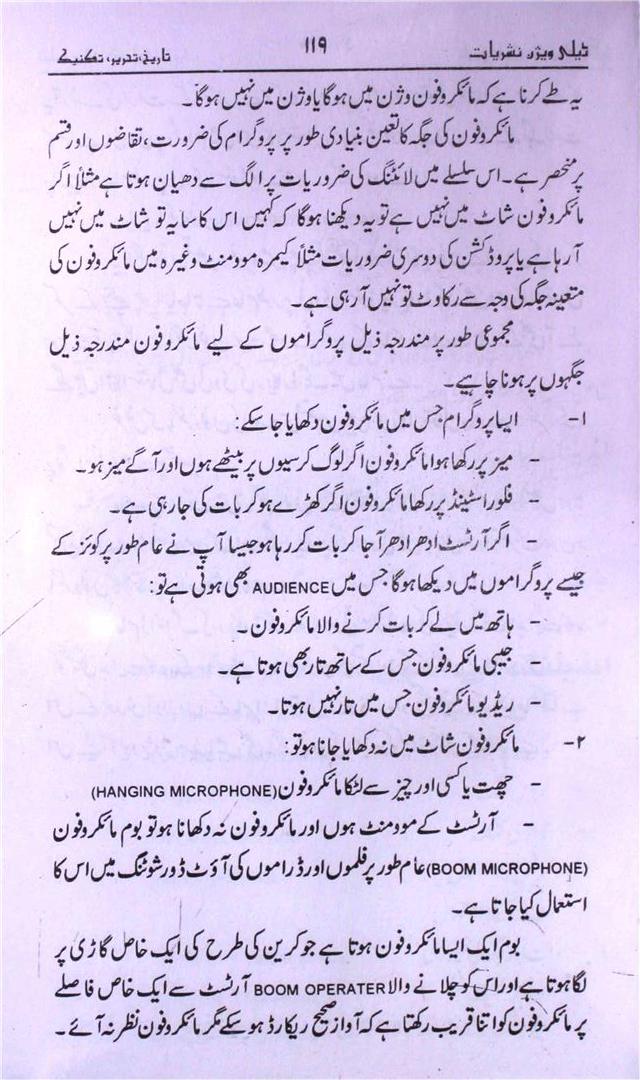 ٹیلی ویژن نشریات
۱۱۹
تاریخ، تحریر، تکنیک
یہ طے کرنا ہے کہ مائکروفون وژن میں ہوگا یا وژن میں نہیں ہوگا۔
مائکروفون کی جگہ کا تعین بنیادی طور پر پروگرام کی ضرورت، تقاضوں اور قسم
پر منحصر ہے۔ اس سلسلے میں لائٹنگ کی ضروریات پر الگ سے دھیان ہوتا ہے مثلاً اگر
مائکروفون شاٹ میں نہیں ہے تو یہ دیکھنا ہوگا کہ کہیں اس کا سایہ تو شاٹ میں نہیں
آ رہا ہے یا پروڈکشن کی دوسری ضروریات مثلاً کیمرہ موومنٹ وغیرہ میں مائکروفون کی
متعینہ جگہ کی وجہ سے رکاوٹ تو نہیں آ رہی ہے۔
مجموعی طور پر مندرجہ ذیل پروگراموں کے لیے مائکروفون مندرجہ ذیل
جگہوں پر ہونا چاہیے۔
۱- ایسا پروگرام جس میں مائکروفون دکھایا جا سکے:
- میز پر رکھا ہوا مائکروفون اگر لوگ کرسیوں پر بیٹھے ہوں اور آگے میز ہو۔
- فلور اسٹینڈ پر رکھا مائکروفون اگر کھڑے ہو کر بات کی جا رہی ہے۔
- اگر آرٹسٹ ادھر ادھر آ جا کر بات کر رہا ہو جیسا آپ نے عام طور پر کوئز کے
جیسے پروگراموں میں دیکھا ہوگا جس میں AUDIENCE بھی ہوتی ہے تو:
- ہاتھ میں لے کر بات کرنے والا مائکروفون۔
- جیبی مائکروفون جس کے ساتھ تار بھی ہوتا ہے۔
- ریڈیو مائکروفون جس میں تار نہیں ہوتا۔
۲- مائکروفون شاٹ میں نہ دکھایا جانا ہو تو:
- چھت یا کسی اور چیز سے لٹکا مائکروفون (HANGING MICROPHONE)
- آرٹسٹ کے موومنٹ ہوں اور مائکروفون نہ دکھانا ہو تو بوم مائکروفون
(BOOM MICROPHONE) عام طور پر فلموں اور ڈراموں کی آؤٹ ڈور شوٹنگ میں اس کا
استعمال کیا جاتا ہے۔
بوم ایک ایسا مائکروفون ہوتا ہے جو کرین کی طرح کی ایک خاص گاڑی پر
لگا ہوتا ہے اور اس کو چلانے والا BOOM OPERATER آرٹسٹ سے ایک خاص فاصلے
پر مائکروفون کو اتنا قریب رکھتا ہے کہ آواز صحیح ریکارڈ ہو سکے مگر مائکروفون نظر نہ آئے۔